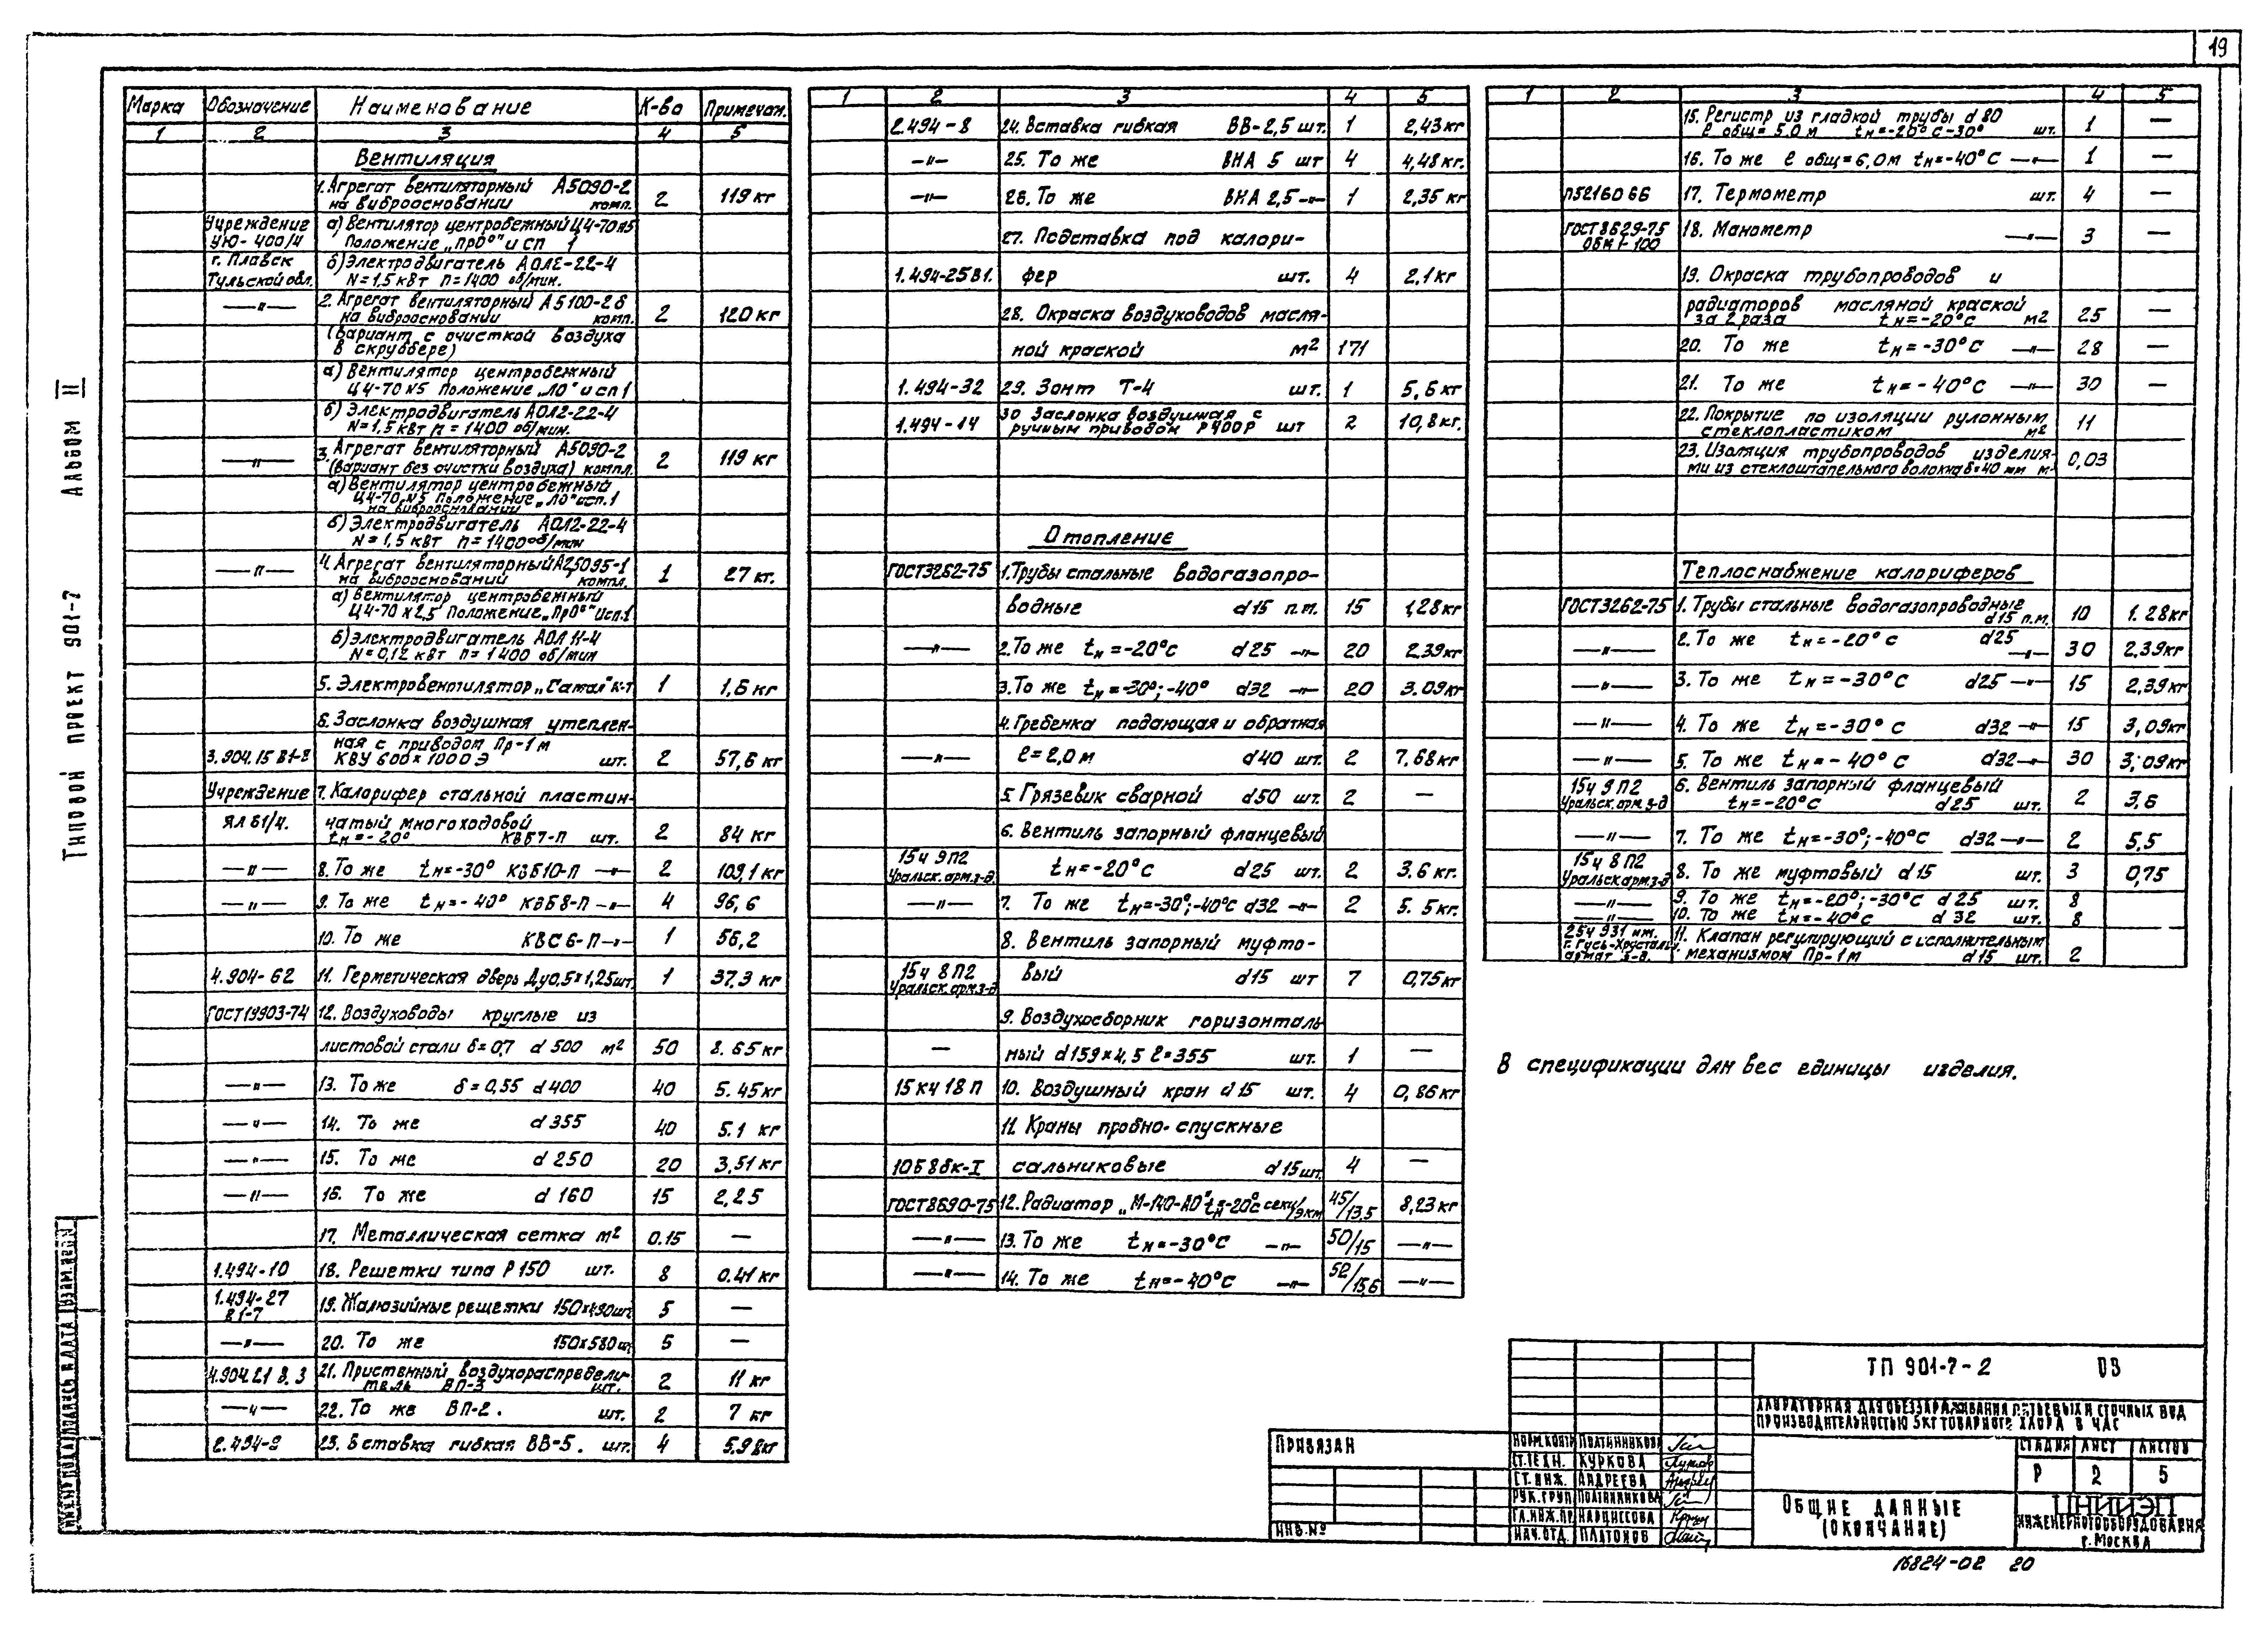 19
Марка Обозначение Наименование К-во Примечан.
1 2 3 4 5
Вентиляция
1. Агрегат вентиляторный А5090-2
на виброосновании комп. 2 119 кг
Учреждение а) Вентилятор центробежный Ц4-70 №5
УЮ-400/4 Положение „Пр0°" и сп 1
г. Плавск б) Электродвигатель АОЛ2-22-4
Тульской обл. N=1,5 кВт п=1400 об/мин.
—"— 2. Агрегат вентиляторный А5100-2б
на виброосновании комп. 2 120 кг
(Вариант с очисткой воздуха
в скруббере)
а) Вентилятор центробежный
Ц4-70 №5 Положение „Л0" исп 1
б) Электродвигатель АОЛ2-22-4
N=1,5 кВт п=1400 об/мин.
—"— 3. Агрегат вентиляторный А5090-2
(Вариант без очистки воздуха) компл. 2 119 кг
а) Вентилятор центробежный
Ц4-70 №5 Положение „Л0" исп.1
на виброосновании
б) Электродвигатель АОЛ2-22-4
N=1,5 кВт п=1400 об/мин
—"— 4. Агрегат вентиляторный А2,5095-1
на виброосновании компл. 1 27 кг.
а) Вентилятор центробежный
Ц4-70 №2,5 Положение „Пр0°" Исп.1
б) Электродвигатель АОЛ 11-4
N=0,12 кВт п=1400 об/мин
5. Электровентилятор „Самал" к-т 1 1,6 кг
6. Заслонка воздушная утеплен-
ная с приводом Пр-1м
3.904.15 В1-2 КВУ 600×1000 Э шт. 2 57,6 кг
Учреждение 7. Калорифер стальной пластин-
ЯЛ 61/4. чатый многоходовой
tн=-20° КВБ7-П шт. 2 84 кг
—"— 8. То же tн=-30° КВБ10-П —"— 2 109,1 кг
—"— 9. То же tн=-40° КВБ8-П —"— 4 96,6
10. То же КВС6-П —"— 1 56,2
4.904-62 11. Герметическая дверь Ду0,5×1,25 шт. 1 37.3 кг
ГОСТ19903-74 12. Воздуховоды круглые из
листовой стали δ=0,7 d 500 м² 50 8.65 кг
—"— 13. То же δ=0,55 d 400 40 5.45 кг
—"— 14. То же d 355 40 5.1 кг
—"— 15. То же d 250 20 3,51 кг
—"— 16. То же d 160 15 2,25
17. Металлическая сетка м² 0.15 —
1.494-10 18. Решетки типа Р150 шт. 8 0.41 кг
1.494-27
В1-7 19. Жалюзийные решетки 150×490 шт. 5 —
—"— 20. То же 150×580 шт. 5 —
4.904.21 В.3 21. Пристенный воздухораспредели-
тель ВП-3 шт. 2 11 кг
—"— 22. То же ВП-2. шт. 2 7 кг
2.494-8 23. Вставка гибкая ВВ-5. шт. 4 5.98 кг
1 2 3 4 5
2.494-8 24. Вставка гибкая ВВ-2,5 шт. 1 2,43 кг
—"— 25. То же ВНА 5 шт 4 4,48 кг.
—"— 26. То же ВНА 2,5 —"— 1 2,35 кг
27. Подставка под калори-
1.494-25 В1. фер шт. 4 2,1 кг
28. Окраска воздуховодов масля-
ной краской м² 171
1.494-32 29. Зонт Т-4 шт. 1 5,6 кг
1.494-14 30 Заслонка воздушная с
ручным приводом Р400Р шт 2 10,8 кг.
Отопление
ГОСТ3262-75 1. Трубы стальные водогазопро-
водные d15 п.м. 15 1,28 кг
—"— 2. То же tн=-20°с d25 —"— 20 2,39 кг
3. То же tн=-30°; -40° d32 —"— 20 3.09 кг
4. Гребенка подающая и обратная
—"— ℓ=2,0 м d40 шт. 2 7,68 кг
5. Грязевик сварной d50 шт. 2 —
6. Вентиль запорный фланцевый
15ч 9П2
Уральск. арм.з-д. tн=-20°с d25 шт. 2 3.6 кг.
—"— 7. То же tн=-30°; -40°с d32 —"— 2 5.5 кг.
8. Вентиль запорный муфто-
15ч 8П2
Уральск. арм.з-д вый d15 шт 7 0,75 кг
9. Воздухосборник горизонталь
— ный d159×4,5 ℓ=355 шт. 1 —
15 кч 18 П 10. Воздушный кран d 15 шт. 4 0,86 кг
11. Краны пробно-спускные
10Б 8бк-I сальниковые d15 шт. 4 —
ГОСТ8690-75 12. Радиатор „М-140-АО" tн=-20°с секц/экм 45/13,5 8,23 кг
—"— 13. То же tн=-30°с —"— 50/15 —"—
—"— 14. То же tн=-40°с —"— 52/15,6 —"—
1 2 3 4 5
15. Регистр из гладкой трубы d 80
ℓ общ=5.0 м tн=-20°с-30° шт. 1 —
16. То же ℓ общ=6,0м tн=-40°С —"— 1 —
П5216066 17. Термометр шт. 4 —
ГОСТ8629-75
ОБМ 1-100 18. Манометр —"— 3 —
19. Окраска трубопроводов и
радиаторов масляной краской
за 2 раза tн=-20°с м2 25 —
20. То же tн=-30°с —"— 28 —
21. То же tн=-40°с —"— 30 —
22. Покрытие по изоляции рулонным
стеклопластиком м² 11
23. Изоляция трубопроводов изделия-
ми из стеклоштапельного волокна δ=40 мм м³ 0,03
Теплоснабжение калориферов
ГОСТ3262-75 1. Трубы стальные водогазопроводные
d15 п.м. 10 1.28кг
—"— 2. То же tн=-20°с d25 —"— 30 2,39кг
—"— 3. То же tн=-30°с d25 —"— 15 2,39кг
—"— 4. То же tн=-30°с d32 —"— 15 3,09кг
—"— 5. То же tн=-40°с d32 —"— 30 3,09кг
15ч 9П2 6. Вентиль запорный фланцевый
Уральск. арм.з-д tн=-20°с d25 шт. 2 3.6
—"— 7. То же tн=-30°; -40°с d32 —"— 2 5,5
15ч 8П2
Уральск арм.з-д 8. То же муфтовый d15 шт. 3 0,75
—"— 9. То же tн=-20°; -30°с d 25 шт. 8
—"— 10. То же tн=-40°с d 32 шт. 8
25ч 931 нж.
г. Гусь-Хрустальн. 11. Клапан регулирующий с исполнительным
армат з-д. механизмом Пр-1м d15 шт. 2
В спецификации дан вес единицы изделия.
Типовой проект 901-7 Альбом II
ИНВ.№ ПОДЛ. ПОДПИСЬ И ДАТА ВЗАМ.ИНВ.№
ПРИВЯЗАН
ИНВ.№
НОРМ.КОНТР ПОЛТИННИКОВА
СТ.ТЕХН. КУРКОВА
СТ.ИНЖ. АНДРЕЕВА
РУК.ГРУП ПОЛТИННИКОВА
ГЛ.ИНЖ.ПР НАРЦИССОВА
НАЧ.ОТД. ПЛАТОНОВ
ТП 901-7-2 ОВ
ХЛОРАТОРНАЯ ДЛЯ ОБЕЗЗАРАЖИВАНИЯ ПИТЬЕВЫХ И СТОЧНЫХ ВОД
ПРОИЗВОДИТЕЛЬНОСТЬЮ 5КГ ТОВАРНОГО ХЛОРА В ЧАС
СТАДИЯ ЛИСТ ЛИСТОВ
Р 2 5
ОБЩИЕ ДАННЫЕ
(ОКОНЧАНИЕ)
ЦНИИЭП
ИНЖЕНЕРНОГО ОБОРУДОВАНИЯ
г. МОСКВА
16824-02 20